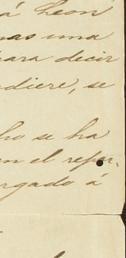 á Leon
nas una
para decir
diere, se
ho se ha
en el refe-
rgado á